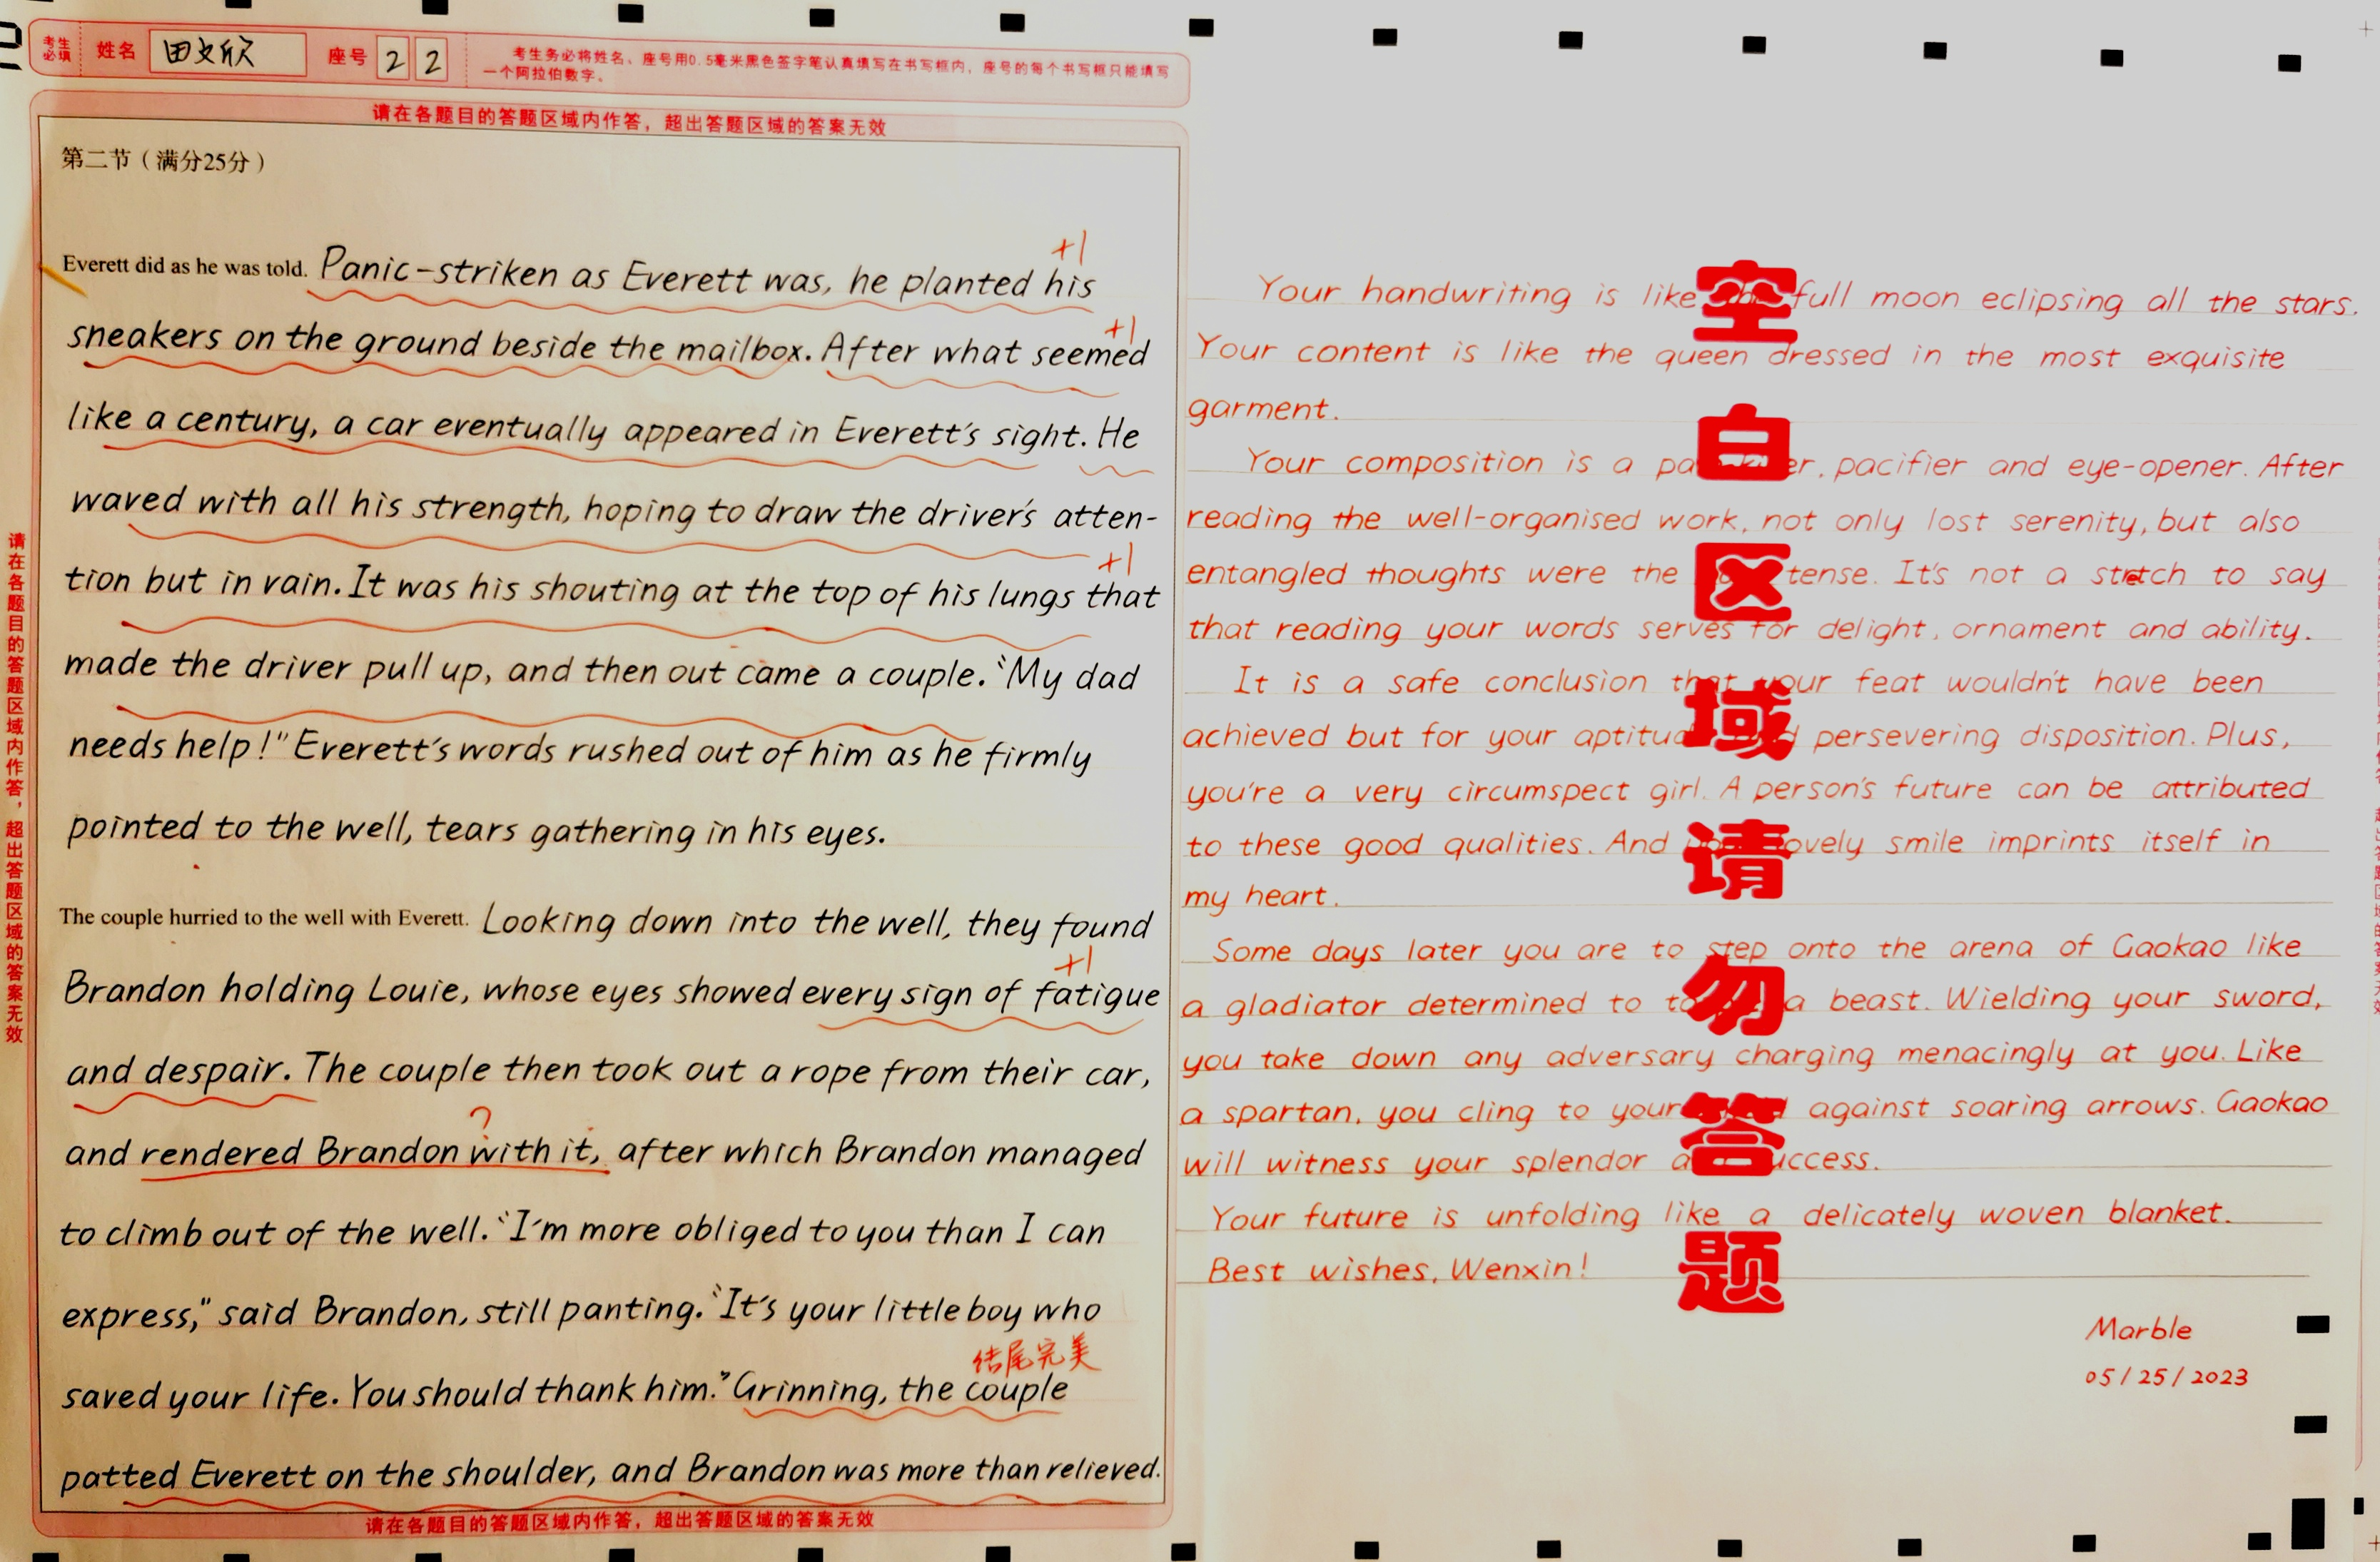 考生必填 姓名 田文欣 座号 2 2 考生务必将姓名、座号用0.5毫米黑色签字笔认真填写在书写框内，座号的每个书写框只能填写
一个阿拉伯数字。
请在各题目的答题区域内作答，超出答题区域的答案无效
第二节（满分25分）
+1
Everett did as he was told. Panic-striken as Everett was, he planted his
+1
sneakers on the ground beside the mailbox. After what seemed
like a century, a car eventually appeared in Everett's sight. He
waved with all his strength, hoping to draw the driver's atten-
+1
tion but in vain. It was his shouting at the top of his lungs that
made the driver pull up, and then out came a couple. "My dad
needs help!" Everett's words rushed out of him as he firmly
pointed to the well, tears gathering in his eyes.
The couple hurried to the well with Everett. Looking down into the well, they found
+1
Brandon holding Louie, whose eyes showed every sign of fatigue
and despair. The couple then took out a rope from their car,
?
and rendered Brandon with it, after which Brandon managed
to climb out of the well. "I'm more obliged to you than I can
express," said Brandon, still panting. "It's your little boy who
结尾完美
saved your life. You should thank him." Grinning, the couple
patted Everett on the shoulder, and Brandon was more than relieved.
请在各题目的答题区域内作答，超出答题区域的答案无效
请在各题目的答题区域内作答，超出答题区域的答案无效
Your handwriting is like full moon eclipsing all the stars.
Your content is like the queen dressed in the most exquisite
garment.
Your composition is a pacifier and eye-opener. After
reading the well-organised work, not only lost serenity, but also
entangled thoughts were the tense. It's not a stretch to say
that reading your words serves for delight, ornament and ability.
It is a safe conclusion that your feat wouldn't have been
achieved but for your persevering disposition. Plus,
you're a very circumspect girl. A person's future can be attributed
to these good qualities. And lovely smile imprints itself in
my heart.
Some days later you are to step onto the arena of Gaokao like
a gladiator determined to a beast. Wielding your sword,
you take down any adversary charging menacingly at you. Like
a spartan, you cling to your against soaring arrows. Gaokao
will witness your splendor success.
Your future is unfolding like a delicately woven blanket.
Best wishes, Wenxin!
Marble
05/25/2023
空白区域请勿答题